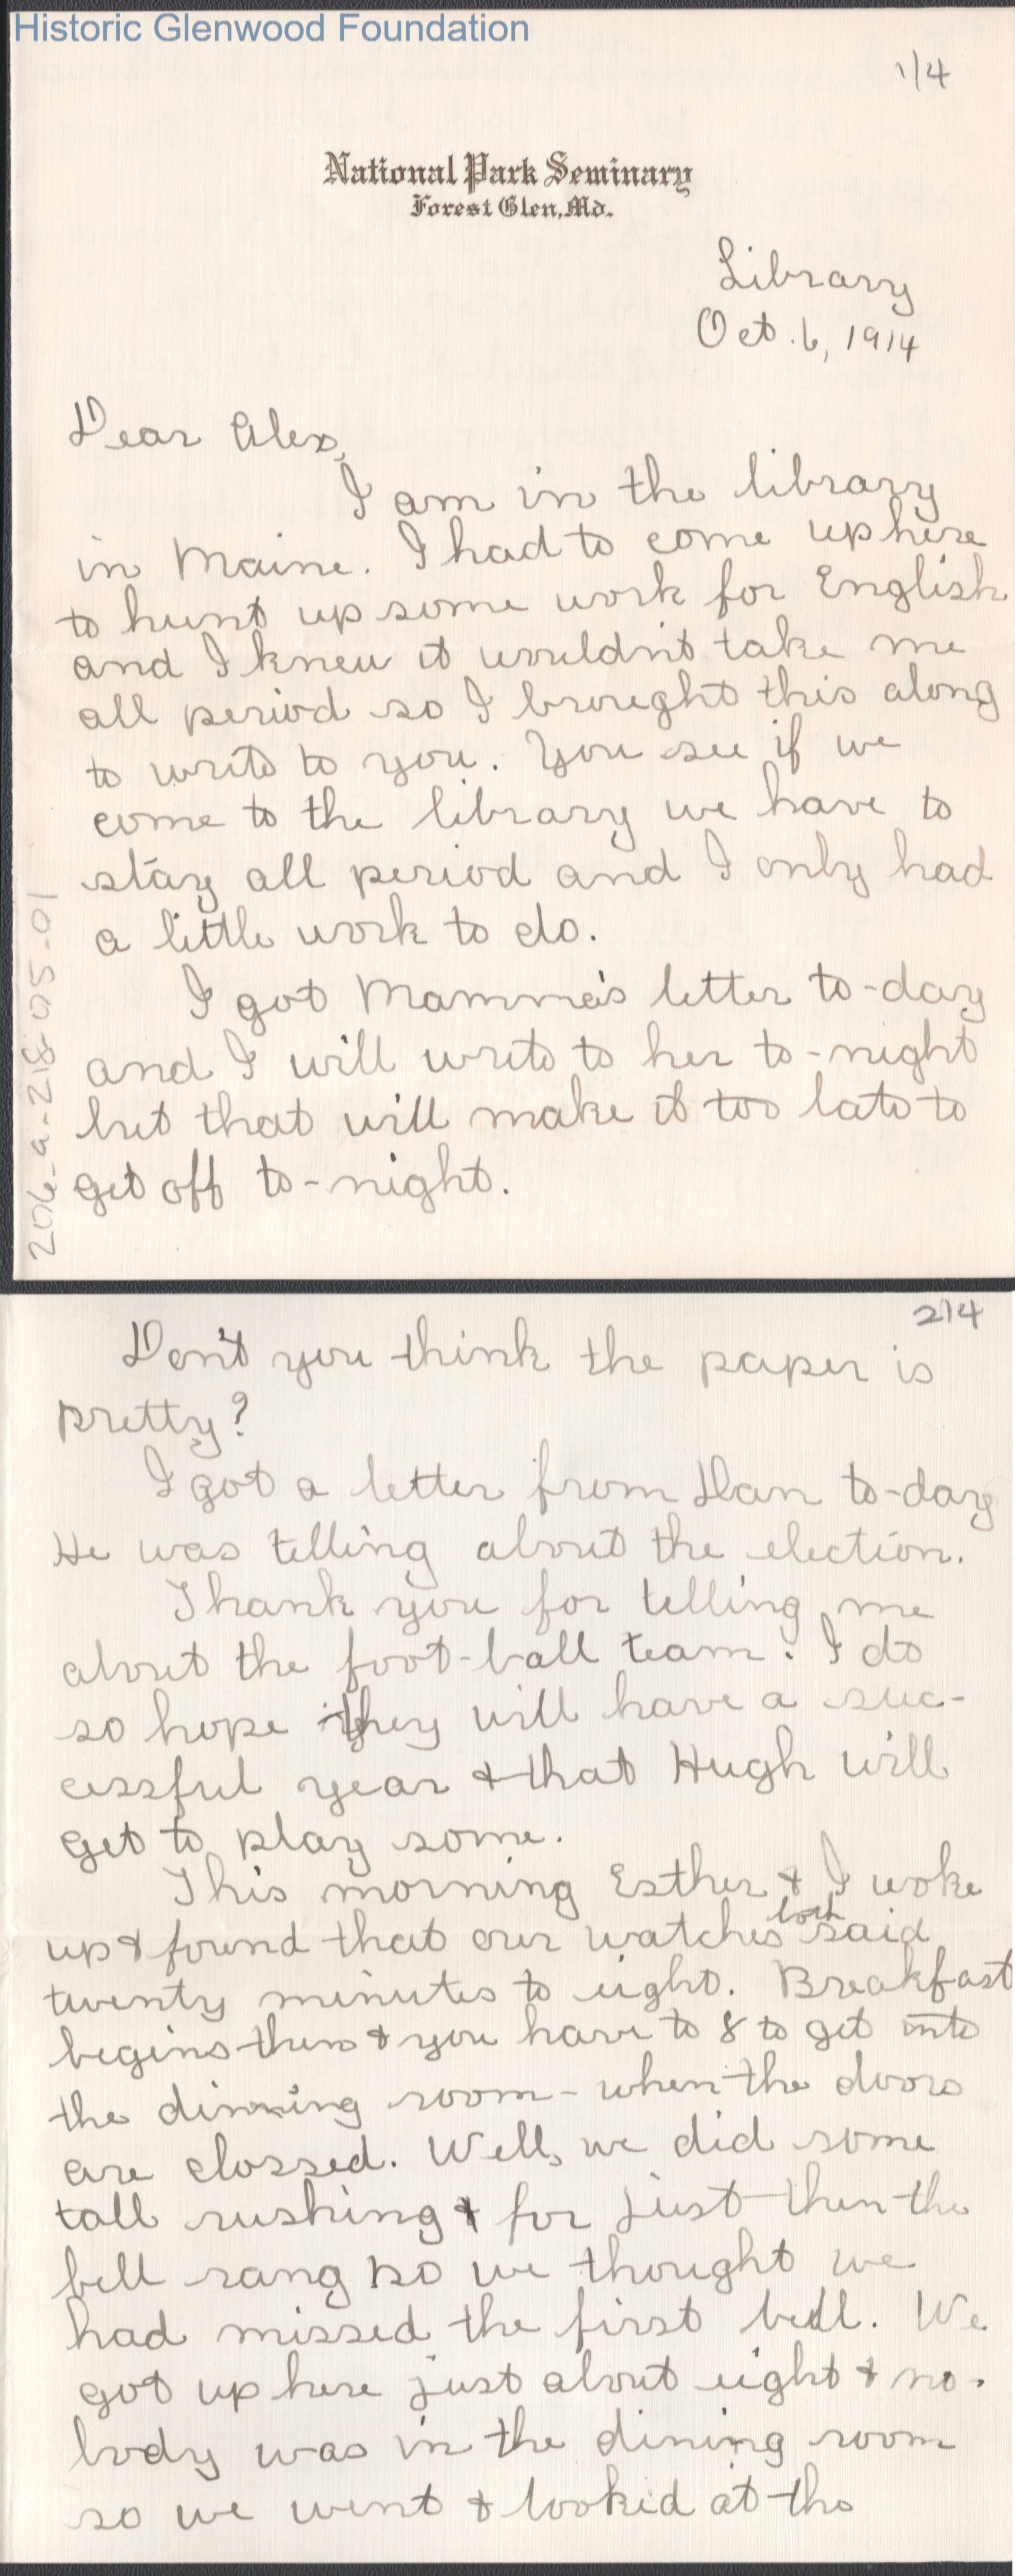 Historic Glenwood Foundation
1/4
National Park Seminary
Forest Glen, Md.
Library
Oct. 6, 1914
Dear Alex,
I am in the library
in Maine. I had to come up here
to hunt up some work for English
and I knew it wouldn't take me
all period so I brought this along
to write to you. You see if we
come to the library we have to
stay all period and I only had
a little work to do.
I got Mamma's letter to-day
and I will write to her to-night
but that will make it too late to
get off to-night.
206-a-218-05-01
2/4
Don't you think the paper is
pretty?
I got a letter from Dan to-day
He was telling about the election.
Thank you for telling me
about the foot-ball team. I do
so hope they will have a suc-
cessful year & that Hugh will
get to play some.
This morning Esther & I woke
up & found that our watches both said
twenty minutes to eight. Breakfast
begins then & you have to 8 to get into
the dinning room - when the doors
are clossed. Well, we did some
tall rushing & for just then the
bell rang so we thought we
had missed the first bell. We
got up here just about eight & no-
body was in the dining room
so we went & looked at the